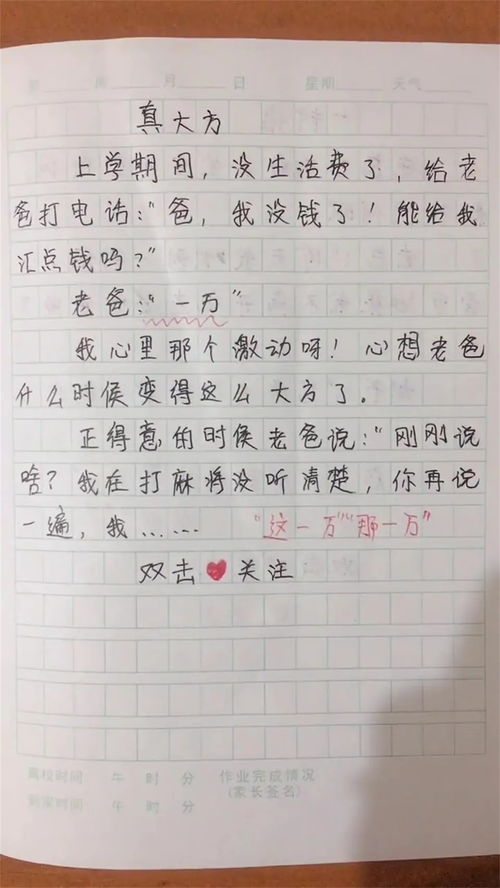 月 日 星期 天气
真大方
上学期间，没生活费了，给老
爸打电话："爸，我没钱了！能给我
汇点钱吗？"
老爸："一万"
我心里那个激动呀！心想老爸
什么时候变得这么大方了．
正得意的时候老爸说："刚刚说
啥？我在打麻将没听清楚，你再说
一遍，我…… "这一万""那一万"
双击❤关注
离校时间 午 时 分 作业完成情况
到家时间 午 时 分 (家长签名)